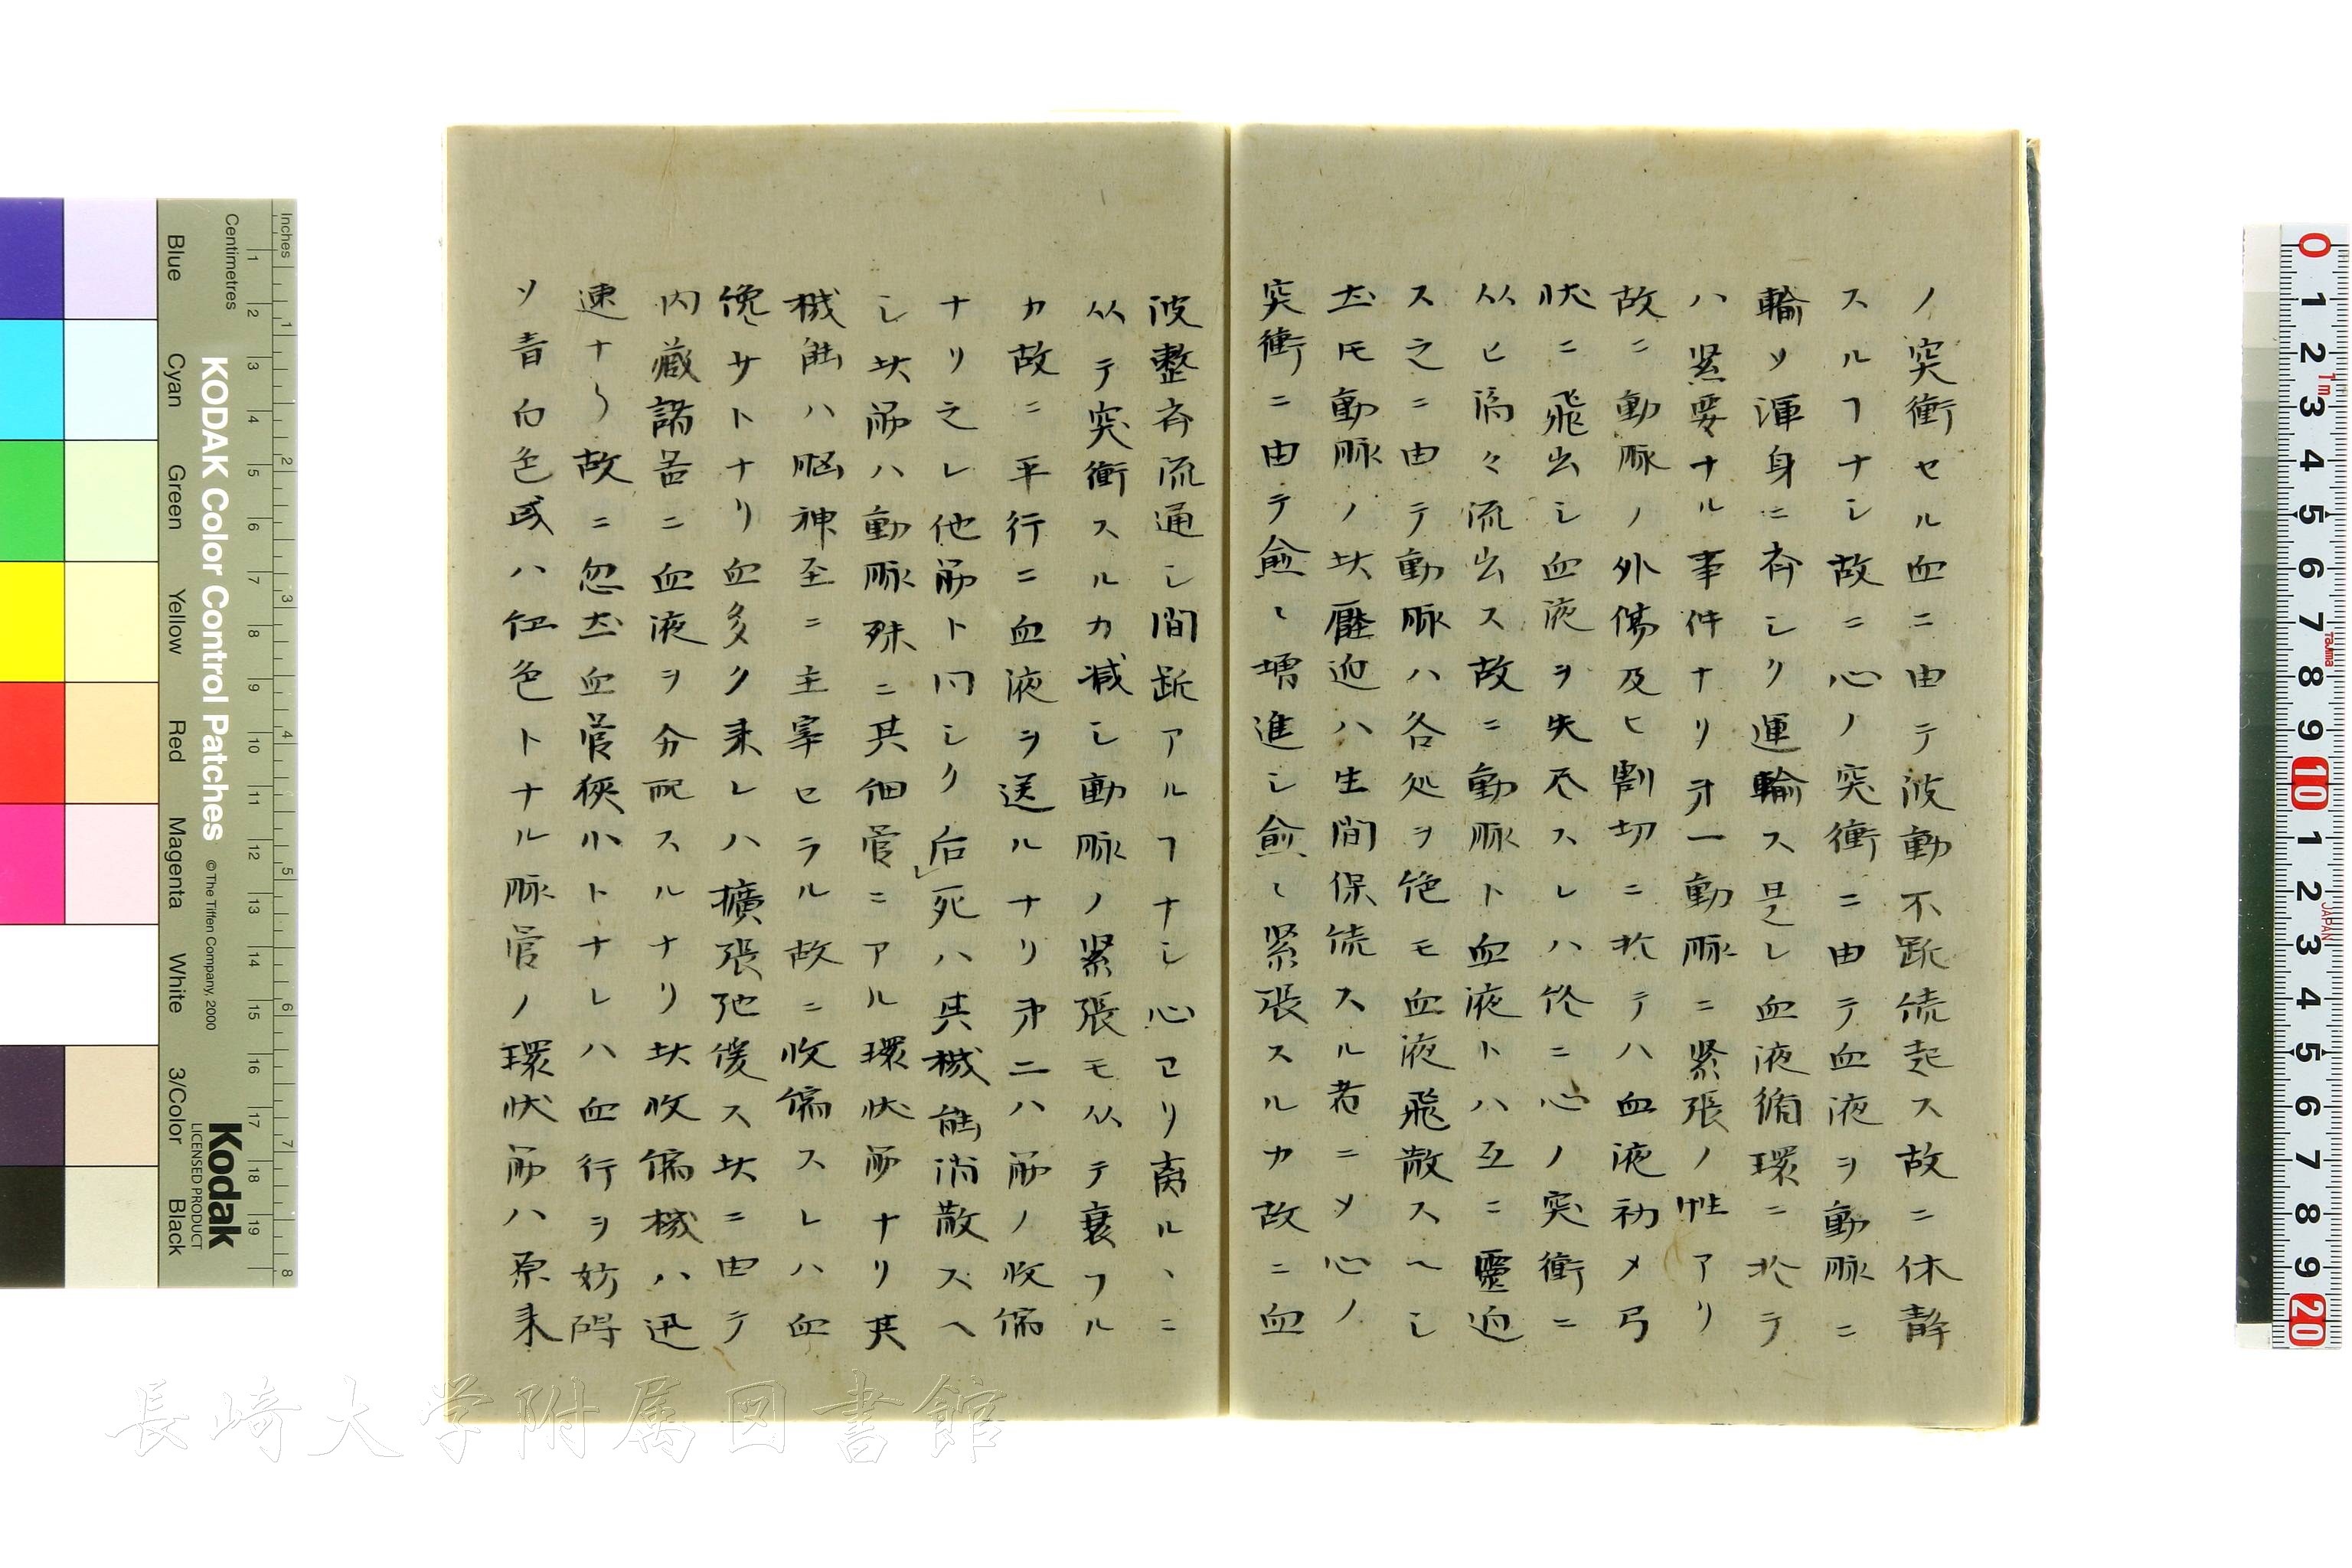 ノ突衝セル血ニ由テ波動不断続起ス故ニ休静
スルヿナシ故ニ心ノ突衝ニ由テ血液ヲ動脈ニ
輸ソ渾身ニ斉シク運輸ス是レ血液循環ニ於テ
ハ緊要ナル事件ナリ才一動脈ニ緊張ノ性アリ
故ニ動脈ノ外傷及ヒ割切ニ於テハ血液初メ弓
状ニ飛出シ血液ヲ失尽スレハ終ニ心ノ突衝ニ
从ヒ滴々流出ス故ニ動脈ト血液トハ互ニ壓迫
ス之ニ由テ動脈ハ各処ヲ絶モ血液飛散スヘシ
𪜈動脈ノ此壓迫ハ生間保続スル者ニメ心ノ
突衝ニ由テ愈々増進シ愈々緊張スルカ故ニ血
波整斉流通シ間断アルヿナシ心ヨリ裔ルヽニ
从テ突衝スルカ減シ動脈ノ緊張モ从テ衰フル
カ故ニ平行ニ血液ヲ送ルナリ才二ハ筋ノ收縮
ナリ之レ他筋ト同シク后死ハ其機能消散スヘ
シ此筋ハ動脈殊ニ其細管ニアル環状筋ナリ其
機能ハ脳神至ニ主宰セラル故ニ收縮スレハ血
儳サトナリ血多ク来レハ擴張弛優ス此ニ由テ
内蔵諸器ニ血液ヲ分配スルナリ此收縮機ハ迅
速ナリ故ニ忽血管狭小トナレハ血行ヲ妨碍
ソ青白色或ハ紅色トナル脈管ノ環状筋ハ原来
KODAK Color Control Patches
©The Tiffen Company, 2000
Kodak
LICENSED PRODUCT
Inches
Centimetres
Blue
Cyan
Green
Yellow
Red
Magenta
White
3/Color
Black
長崎大学附属図書館